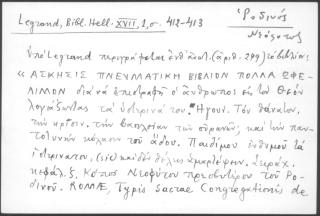 Legrand, Bibl. Hell. XVII, 2, σ. 412-413
Ῥοδινός
Νεόφυτος
Ὑπὸ Legrand περιγράφεται ἐνθ' ἀνωτ. (ἀριθ. 299) τὸ βιβλίον:
« ΑΣΚΗΣΙΣ ΠΝΕΥΜΑΤΙΚΗ ΒΙΒΛΙΟΝ ΠΟΛΛΑ ΩΦΕ-
ΛΙΜΟΝ διὰ νὰ ἐπιστραφῇ ὁ ἄνθρωπος εἰς τὸν Θεὸν
λογιάζοντας τὰ ὕστερινά του. Ἤγουν. Τὸν θάνατον,
τὴν κρίσιν. τὴν βασιλείαν τῶν οὐρανῶν, καὶ τὴν παν-
τοτινὴν κόλασιν τοῦ ᾅδου. Παιδίμου ἐνθυμοῦ τὰ
ὕστερινατου, (sic) καὶ δὲν θέλεις ἁμαρτήσειν. Σειράχ.
κεφάλ. ζ. Κόπος Νεοφύτου πρεσβυτέρου τοῦ Ρο-
δινοῦ. ROMÆ, Typis Sacrae Congregationis de